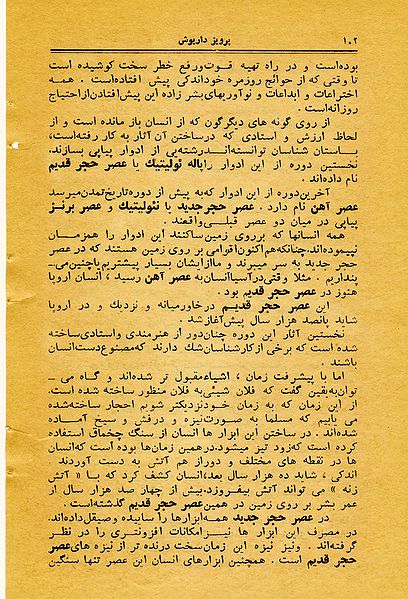 ۱۰۲ پرویز داریوش
بوده‌است و در راه تهیه قوت‌ورفع خطر سخت کوشیده است
تا وقتی که از حوائج روزمره خوداندکی پیش افتاده‌است . همه
اختراعات و ابداعات و نوآوریهای‌بشر زاده این پیش‌افتادن‌ازاحتیاج
روزانه‌است .
از روی گونه های دیگرگون که از انسان باز مانده است و از
لحاظ ارزش و استادی که درساختن آن آثار به کار رفته‌است،
باستان شناسان توانسته‌اند رشته‌یی از ادوار پیاپی بسازند.
نخستین دوره از این ادوار را پاله ئولیتیک یا عصر حجر قدیم
نام داده‌اند .
آخرین‌دوره از این ادوار که‌به پیش از دوره‌تاریخ‌تمدن‌میرسد
عصر آهن نام دارد . عصر حجرجدید یا نئولیتیک و عصر برنز
پیاپی در میان دو عصر قبلی‌واقعند .
همه انسانها که برروی زمین‌ساکنند این ادوار را همزمان
نپیموده‌اند، چنانکه‌هم‌اکنون‌اقوامی بر روی زمین هستند که در عصر
حجر جدید به سر میبرند و ماازایشان بسیار پیشتریم‌یاچنین‌می‌ـ
پنداریم . مثلا وقتی‌درآسیاانسان‌به عصر آهن رسید ، انسان اروپا
هنوز در عصر حجر قدیم بود .
این عصر حجر قدیم در خاورمیانه و نزدیک و در اروپا
شاید پانصد هزار سال پیش‌آغازشد .
نخستین آثار این دوره چنان‌دور از هنرمندی واستادی‌ساخته
شده است که برخی ازکارشناسان‌شک دارند که‌مصنوع‌دست‌انسان
باشند
اما با پیشرفت زمان ، اشیاءمقبول تر شده‌اند و گاه می ـ
توان‌به‌یقین گفت که فلان شیئی‌به فلان منظور ساخته شده است.
از این زمان که به زمان خودنزدیکتر شویم احجار ساخته‌شده
می یابیم که مسلما به صورت‌نیزه و درفش و سیخ آماده
شده‌اند . در ساختن این ابزار ها انسان از سنگ چخماق استفاده
کرده است که‌زود تیز میشود.درهمین زمان‌ها بوده است که‌انسان
ها در نقطه های مختلف و دوراز هم آتش به دست آوردند
اندکی ، شاید ده هزار سال بعد،انسان کشف کرد که با « آتش
زنه » می تواند آتش بیفروزد.بیش از چهار صد هزار سال از
عمر بشر بر روی زمین در همین عصر حجر قدیم گذشته‌است .
در عصر حجر جدید همه‌ابزارها را ساییده وصیقل‌داده‌اند.
در مصرف این ابزار ها نیزامکانات افزونتری را در نظر
گرفته‌اند . ونیز نیزه این زمان‌سخت درنده تر از نیزه های عصر
حجر قدیم است . همچنین ابزارهای انسان این عصر تنها سنگین